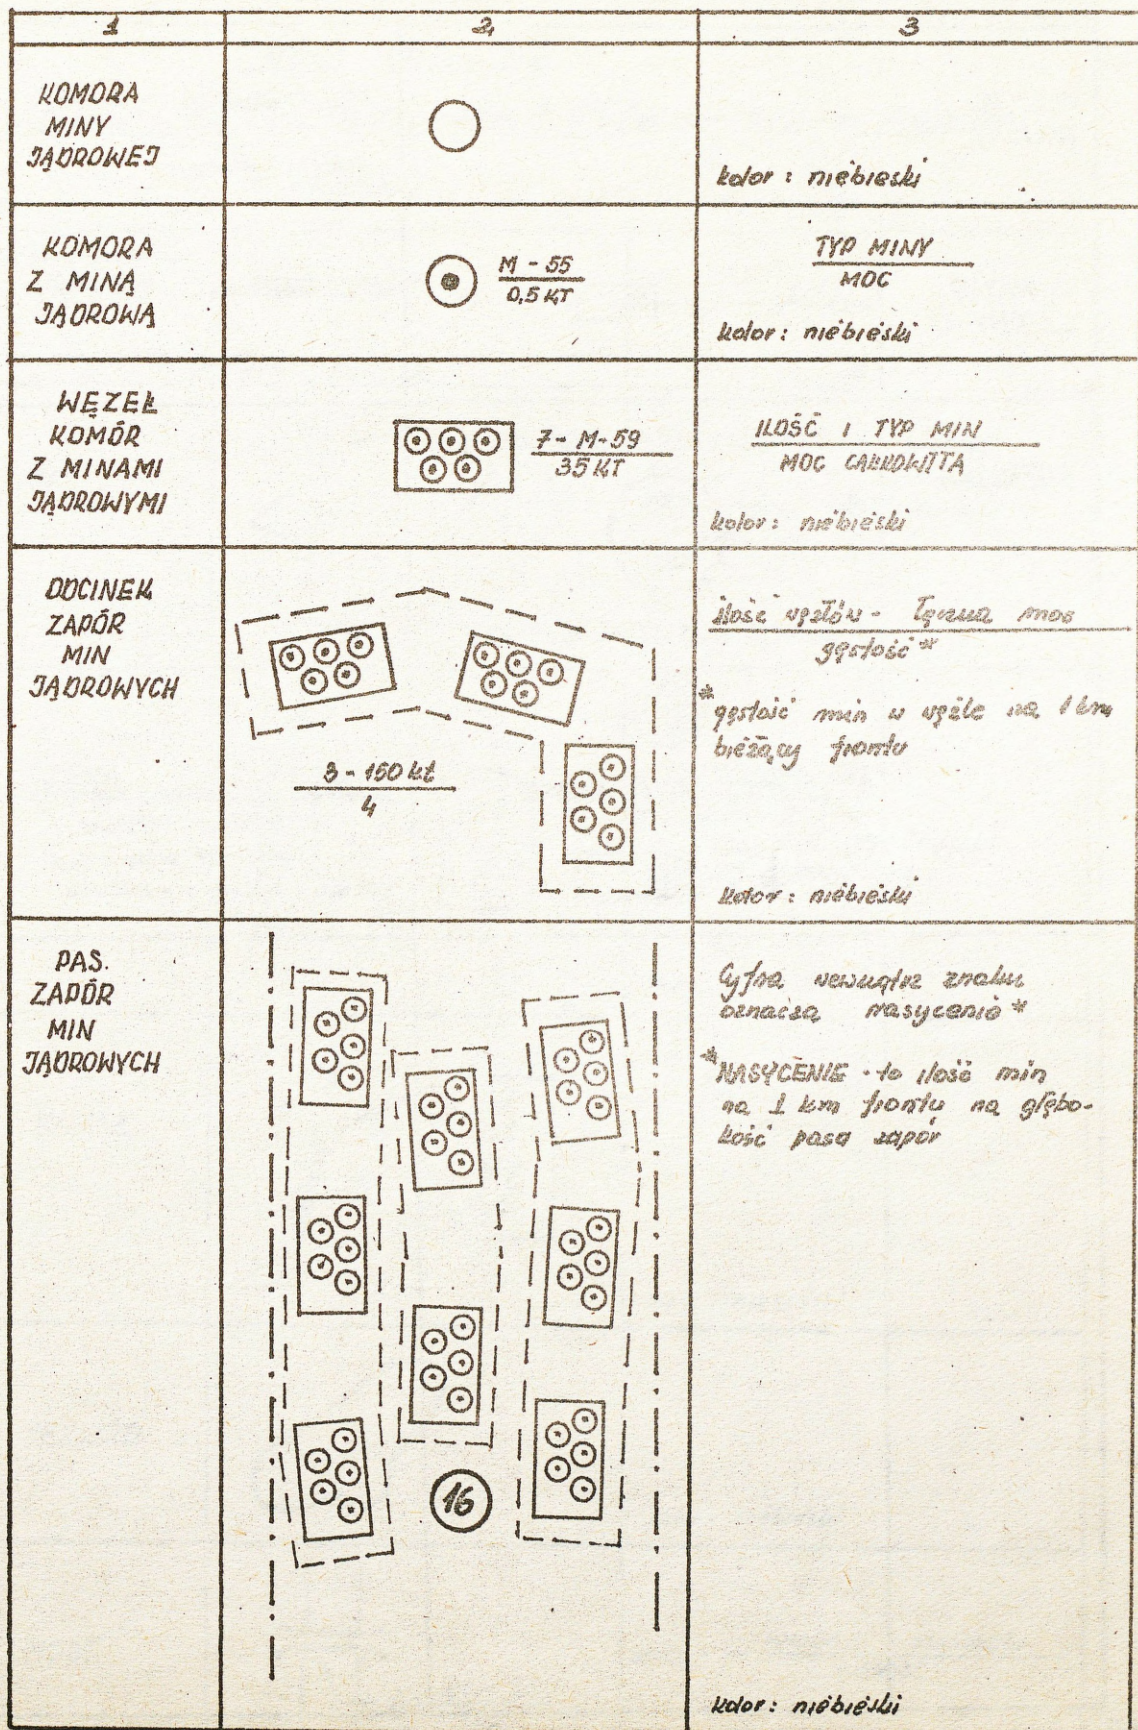 1 2 3
KOMORA
MINY
JĄDROWEJ
kolor: niebieski
KOMORA
Z MINĄ
JĄDROWĄ
M - 55
0,5 KT
TYP MINY
MOC
kolor: niebieski
WĘZEŁ
KOMÓR
Z MINAMI
JĄDROWYMI
7 - M-59
35 KT
ILOŚĆ I TYP MIN
MOC CAŁKOWITA
kolor: niebieski
ODCINEK
ZAPÓR
MIN
JĄDROWYCH
3 - 150 kt
4
ilość węzłów - łączna moc
gęstość*
*gęstość min w węźle na 1 km
bieżący frontu
kolor: niebieski
PAS.
ZAPÓR
MIN
JĄDROWYCH
16
Cyfra wewnątrz znaku
oznacza nasycenie*
*NASYCENIE - to ilość min
na 1 km frontu na głębo-
kość pasa zapór
kolor: niebieski